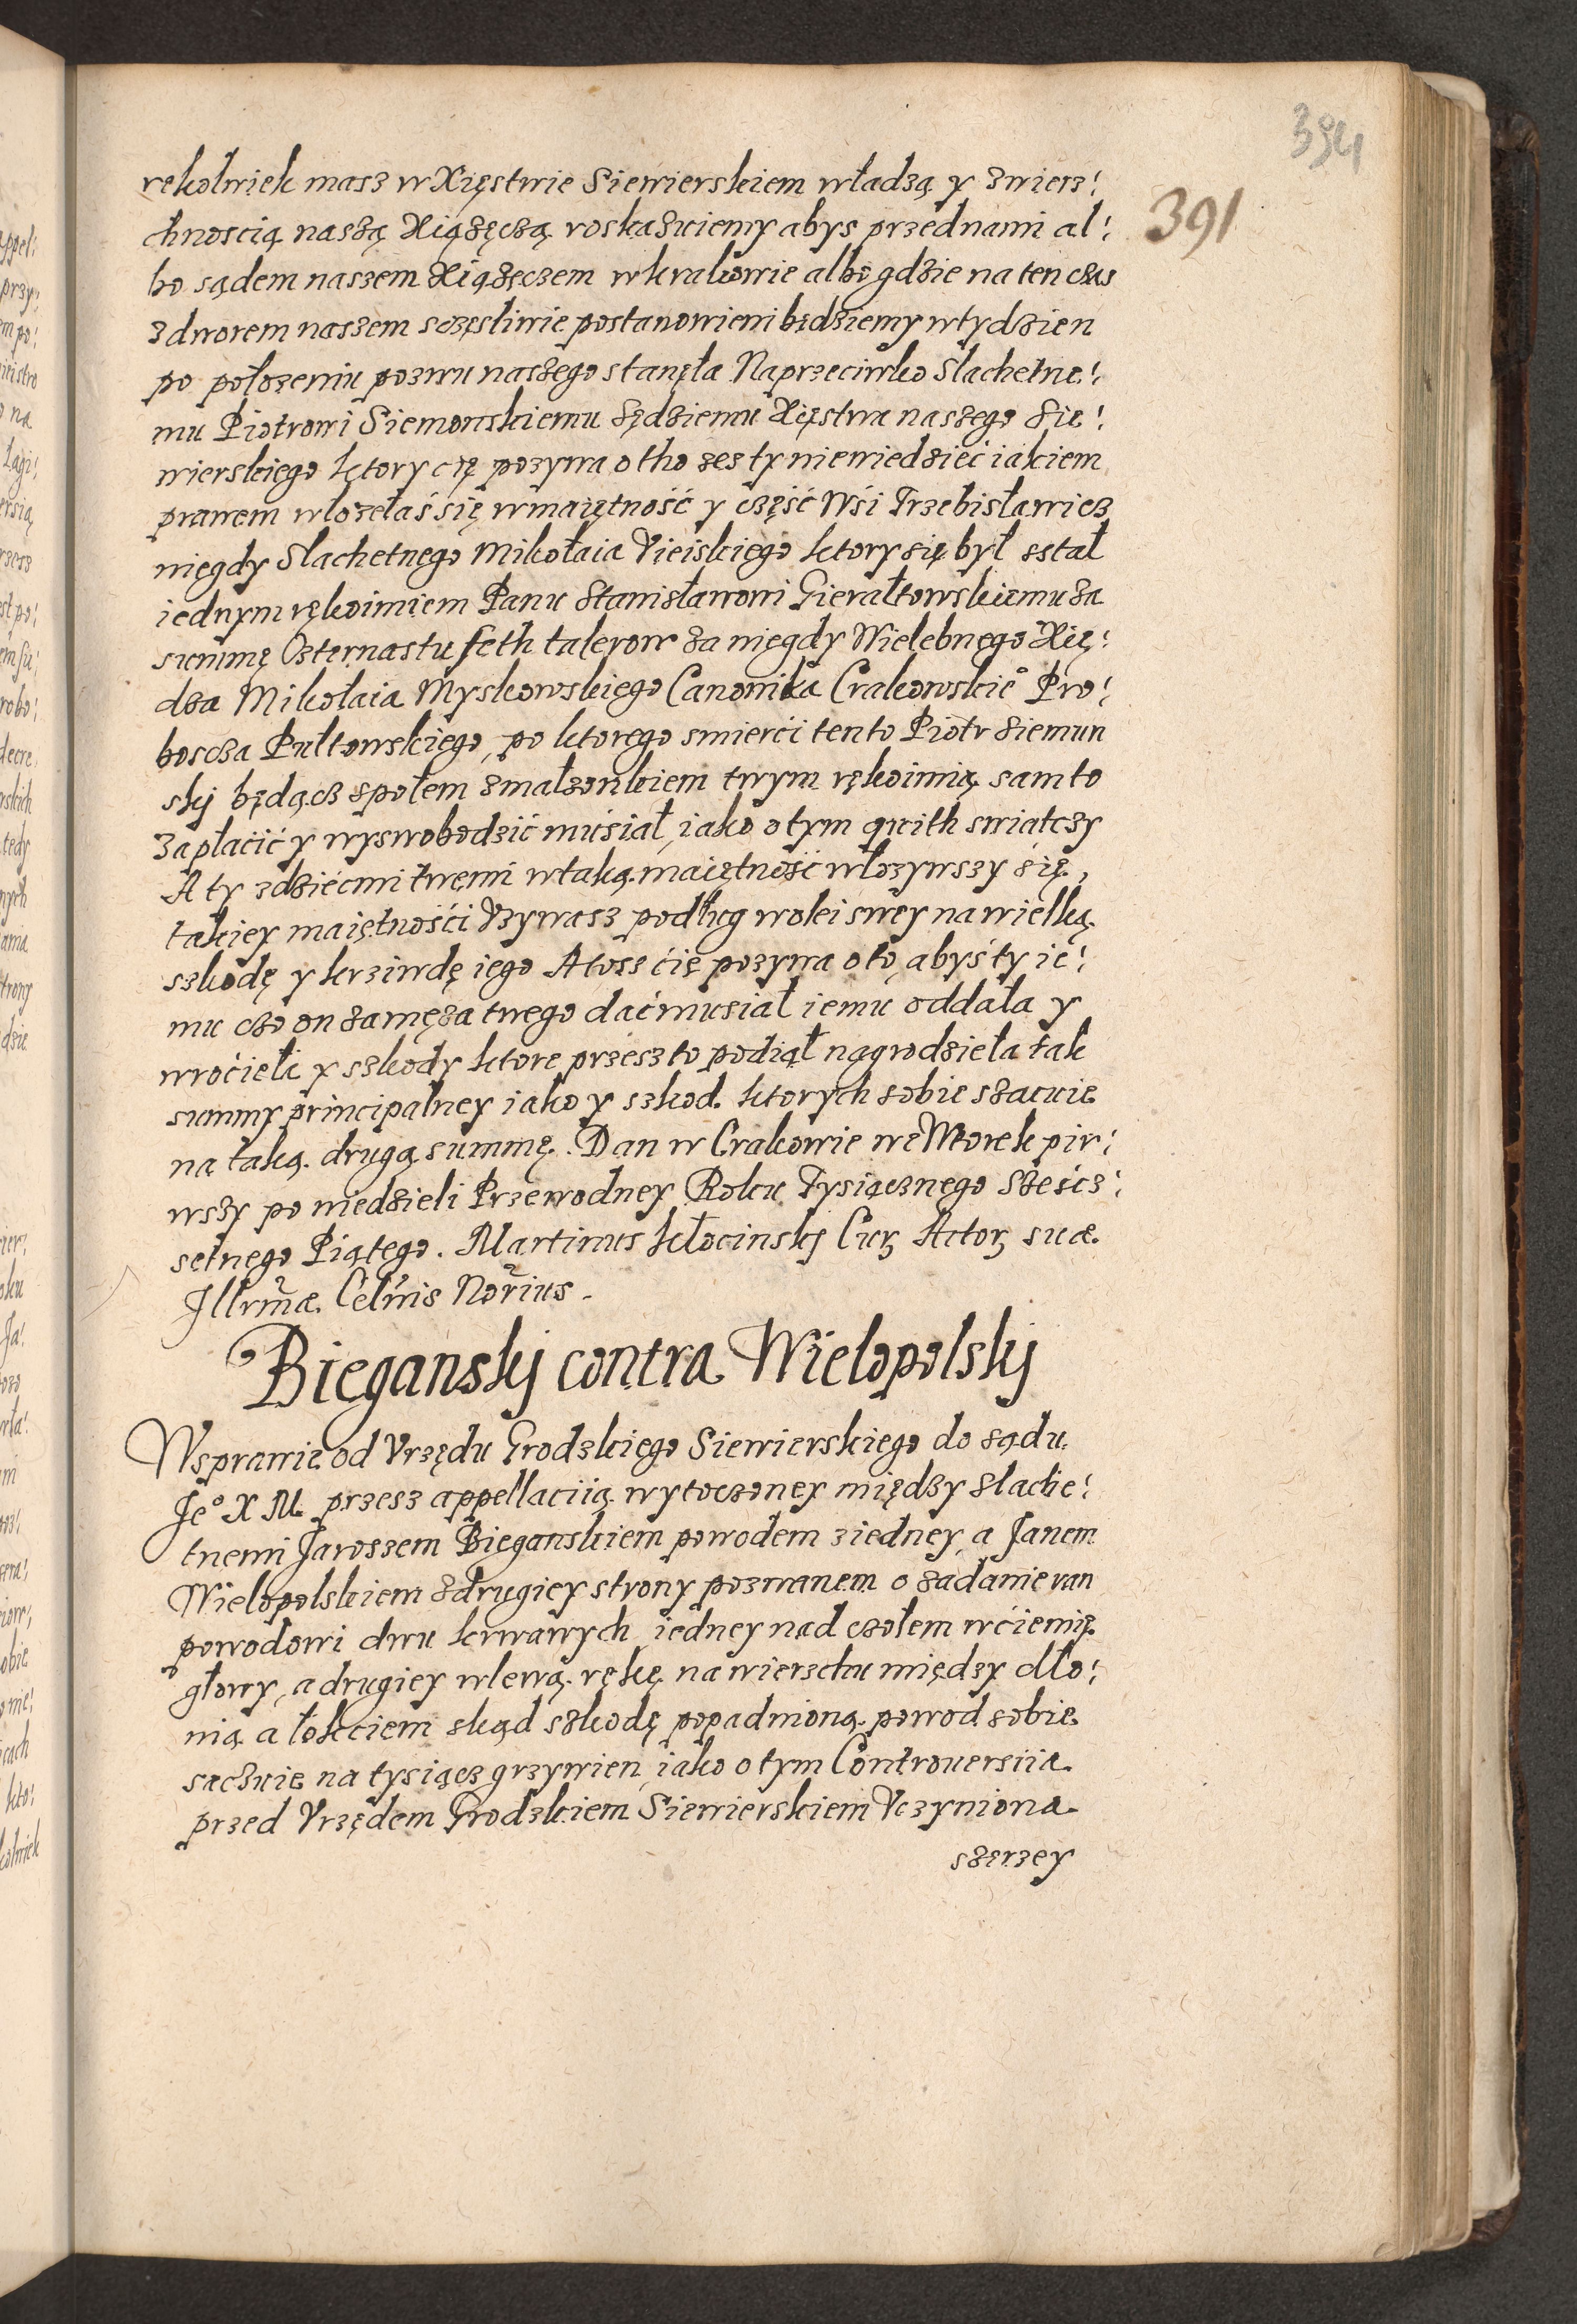 394
391
rekolwiek masz w Xięstwie Siewierskiem władzą y zwierz:
chnoscią naszą Xiążęczą roskazuiemy abys przed nami al:
bo sądem naszem Xiążęczem w krakowie albo gdzie na ten czas
z dworem naszem sczęsliwie postanowieni będziemy w tydzien
po położeniu pozwu naszego stanęła Naprzeciwko Slachetne:
mu Piotrowi Siemonskiemu Sędziemu Xięstwa naszego Sie:
wierskiego ktory cię pozywa o tho zes ty niewiedzieć iakiem
prawem włozełaś się w maiętność y część Wśi Trzebisławicz
niegdy Slachetnego Mikołaia Vieiskiego ktory się był sstał
iednym rękoimiem Panu Stanisławowi Gierałtowskiemu za
summę Czternastu seth talerow za niegdy Wielebnego Xię:
dza Mikołaia Myskowskiego Canonika Crakowskieº Pro:
boscza Pultowskiego, po ktorego smierći tento Piotr Siemun
skj będącz społem z małzonkiem twym rękoimią sam to
zapłacić y wyswobodzić musiał, iako o tym qwith swiatczy
A ty z dziećmi twemi w taką maiętność włozywszy się,
takiey maiętnośći Vzywasz podług wolei swey na wielką
szkodę y krziwdę iego A tosz ćię pozywa o to, abyś ty ie:
mu czo on za męza twego dać musiał iemu oddała y
wroćieła y szkody ktore przes to podiął nagrodzieła tak
summy principalney iako y szkod. ktorych sobie szacuie
na taką drugą summę. Dan w Crakowie we Wtorek pir:
wszy po niedzieli Przewodney Roku Tysiącznego Sześcz:
setnego Piątego. Martinus kłocinskj Cur Actor suæ
Jllrmæ Celnis Norius.
Bieganskj contra Wielopolskj
W sprawie od Vrzędu Grodzkiego Siewierskiego do sądu
Jeº X M. przesz appellaciią wytoczoney między slache:
tnemi Jaroszem Bieganskiem powodem z iedney, a Janem
Wielopolskiem z drugiey strony pozwanem o zadanie ran
powodowi dwu krwawych iedney nad czołem w ćiemię
głowy, a drugiey w lewą rękę na wierzchu między dło:
nią a łokciem skąd szkodę popadnioną powod sobie
saczuie na tysiącz grzywien, iako o tym Controuersiia
przed Vrzędem Grodzkiem Siewierskiem Vczyniona
szerzey